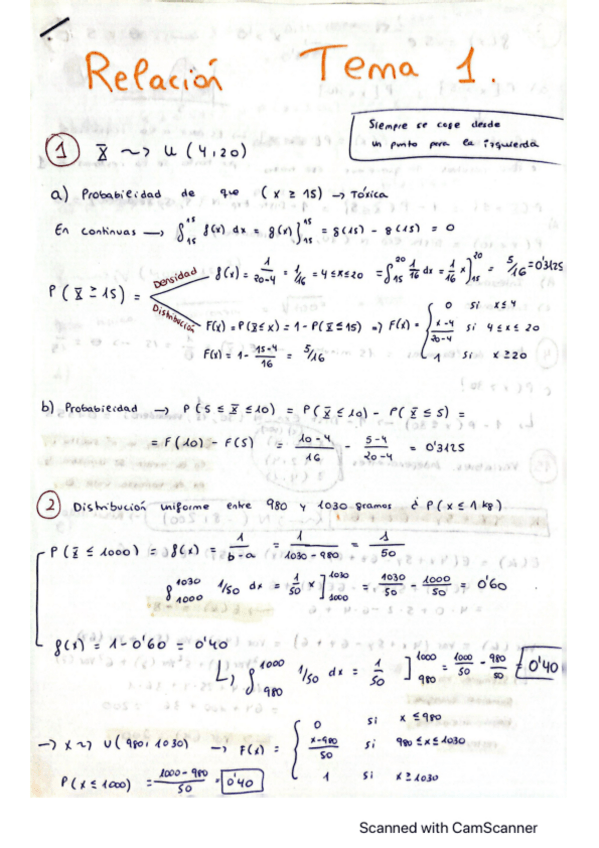 Relación Tema 1.
Siempre se coge desde
un punto para la izquierda
1 X ~> U (4,20)
a) Probabilidad de que (x ≥ 15) → Tóxica
En continuas → ∫₁₅¹⁵ f(x) dx = g(x)]₁₅¹⁵ = g(15) - g(15) = 0
P(X ≥ 15) =
Densidad f(x) = 1/20-4 = 1/16 = 4 ≤ x ≤ 20 = ∫₁₅²⁰ 1/16 dx = 1/16 x]₁₅²⁰ = 5/16 = 0'3125
Distribución F(x) = P(X ≤ x) = 1 - P(X ≤ 15) => F(x) = { 0 si x ≤ 4
x-4/20-4 si 4 ≤ x ≤ 20
1 si x ≥ 20
F(x) = 1 - 15-4/16 = 5/16
b) Probabilidad → P(5 ≤ X ≤ 10) = P(X ≤ 10) - P(X ≤ 5) =
= F(10) - F(5) = 10-4/16 - 5-4/20-4 = 0'3125
2 Distribución uniforme entre 980 y 1030 gramos ¿ P(x ≤ 1 kg)
P(X ≤ 1000) = f(x) = 1/b-a = 1/1030-980 = 1/50
∫₁₀₀₀¹⁰³⁰ 1/50 dx = 1/50 x]₁₀₀₀¹⁰³⁰ = 1030/50 - 1000/50 = 0'60
f(x) = 1 - 0'60 = 0'40
↳ ∫₉₈₀¹⁰⁰⁰ 1/50 dx = 1/50 ]₉₈₀¹⁰⁰⁰ = 1000/50 - 980/50 = 0'40
→ X ~> U(980, 1030) → F(x) = { 0 si x ≤ 980
x-980/50 si 980 ≤ x ≤ 1030
1 si x ≥ 1030
P(x ≤ 1000) = 1000-980/50 = 0'40
Scanned with CamScanner